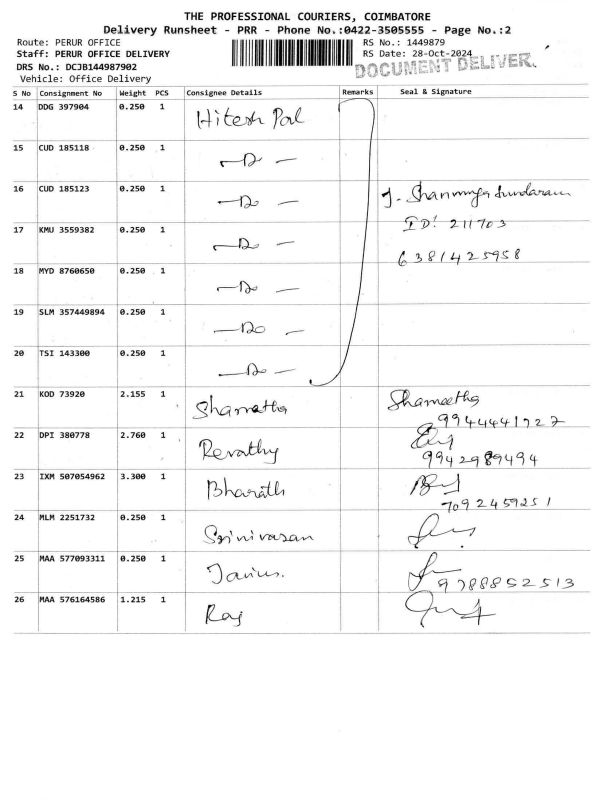 THE PROFESSIONAL COURIERS, COIMBATORE
Delivery Runsheet - PRR - Phone No.:0422-3505555 - Page No.:2
Route: PERUR OFFICE RS No.: 1449879
Staff: PERUR OFFICE DELIVERY RS Date: 28-Oct-2024
DRS No.: DCJB144987902 DOCUMENT DELIVER.
Vehicle: Office Delivery
S No Consignment No Weight PCS Consignee Details Remarks Seal & Signature
14 DDG 397904 0.250 1 Hitesh Pal
15 CUD 185118 0.250 1 —Do —
16 CUD 185123 0.250 1 —Do — J. Shanmuga Sundaram
ID: 211703
17 KMU 3559382 0.250 1 —Do —
6381425958
18 MYD 8760650 0.250 1 —Do —
19 SLM 357449894 0.250 1 —Do —
20 TSI 143300 0.250 1 —Do —
21 KOD 73920 2.155 1 Shametha Shameetha
9944441727
22 DPI 380778 2.760 1 Revathy
9942989494
23 IXM 507054962 3.300 1 Bharath
7092459251
24 MLM 2251732 0.250 1 Srinivasan
25 MAA 577093311 0.250 1
9788852513
26 MAA 576164586 1.215 1 Raj